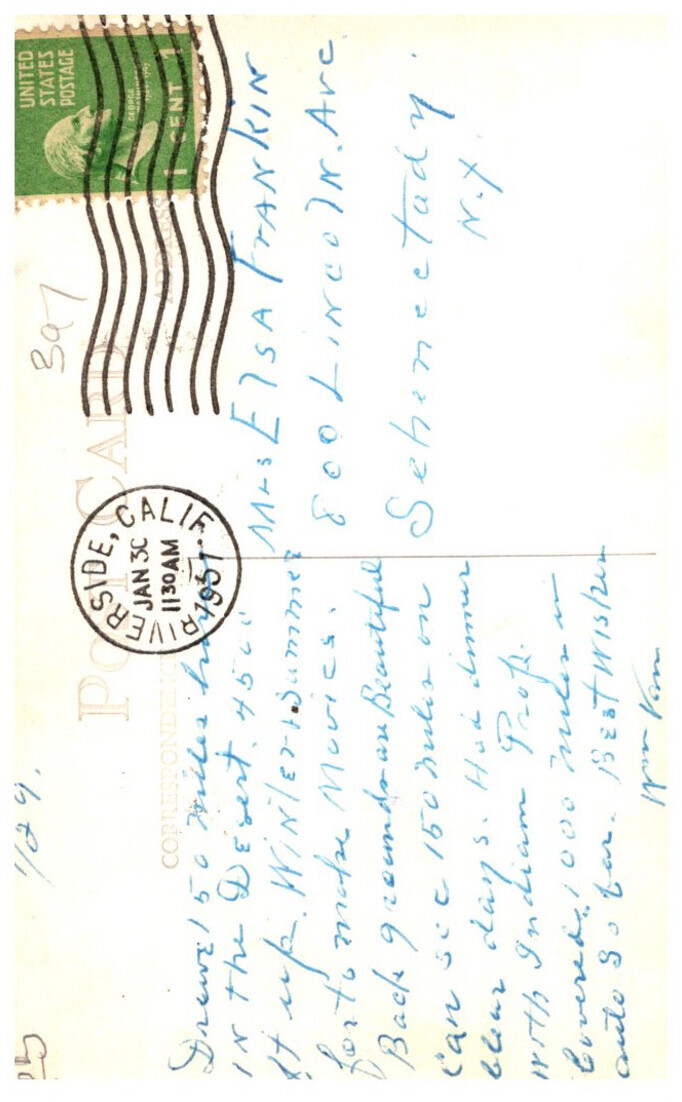 1/29.
POST CARD
CORRESPONDENCE
ADDRESS
397
UNITED
STATES
POSTAGE
GEORGE
1 CENT 1
RIVERSIDE, CALIF.
JAN 30
11 30 AM
1951
Drove 150 miles
IN the Desert. 4500
ft up. Winter & Summer
for to make Movies.
Back grounds are Beautiful
Can see 150 miles on
clear days. Had dinner
with Indian Prof.
Covered 1000 miles in
auto so far. Best Wishes
Wm
Mrs Elsa FRANKIN
800 LINCOLN. Ave
Schenectady.
N.Y